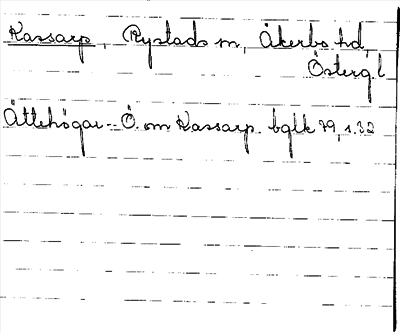 Kassarp, Rystads sn, Åkerbo hd,
Österg.l
Ättehögar - Ö. om Kassarp. bglk 79, s. 32